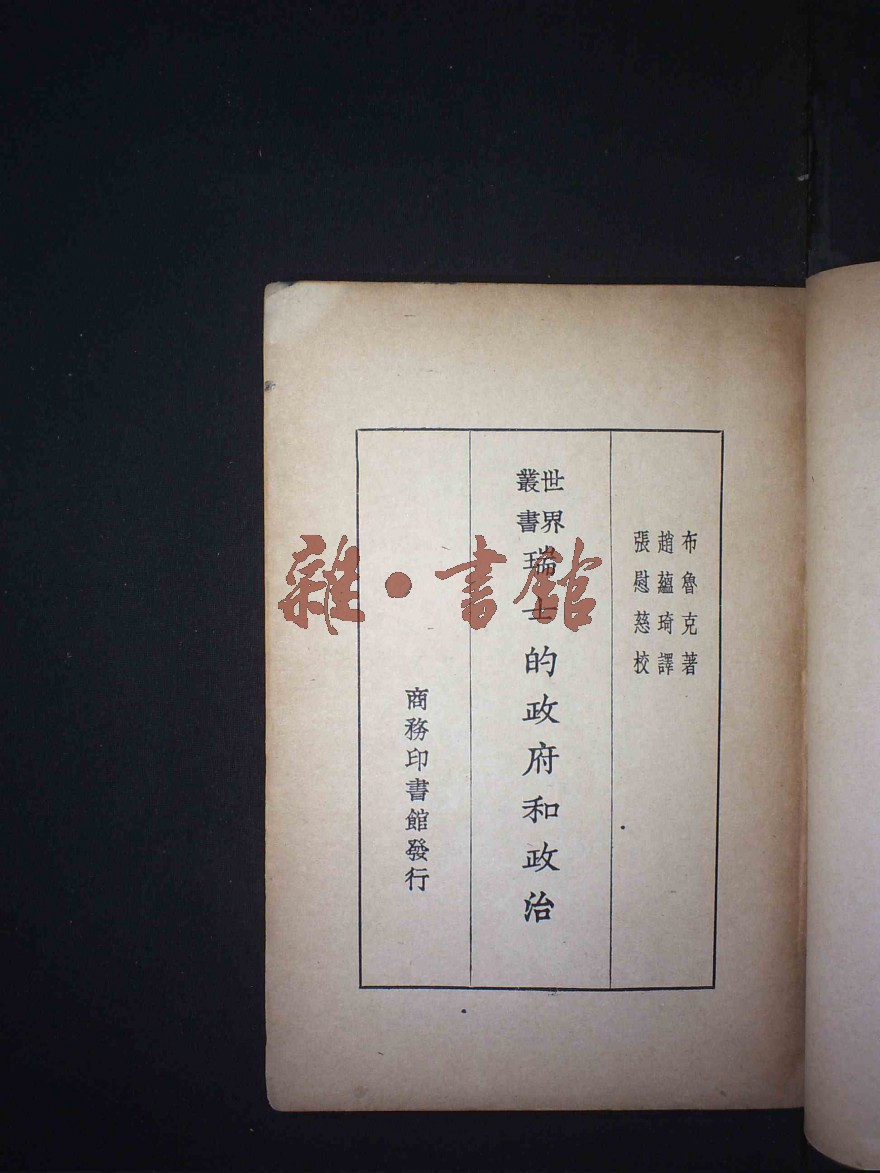 布魯克著
趙蘊琦譯
張慰慈校
世界
叢書
瑞士的政府和政治
商務印書館發行
雜·書館